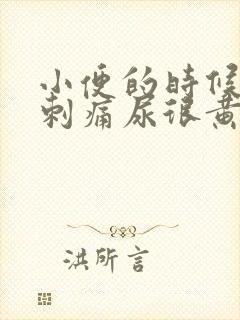 小便的时候
刺痛尿很黄
洪所言